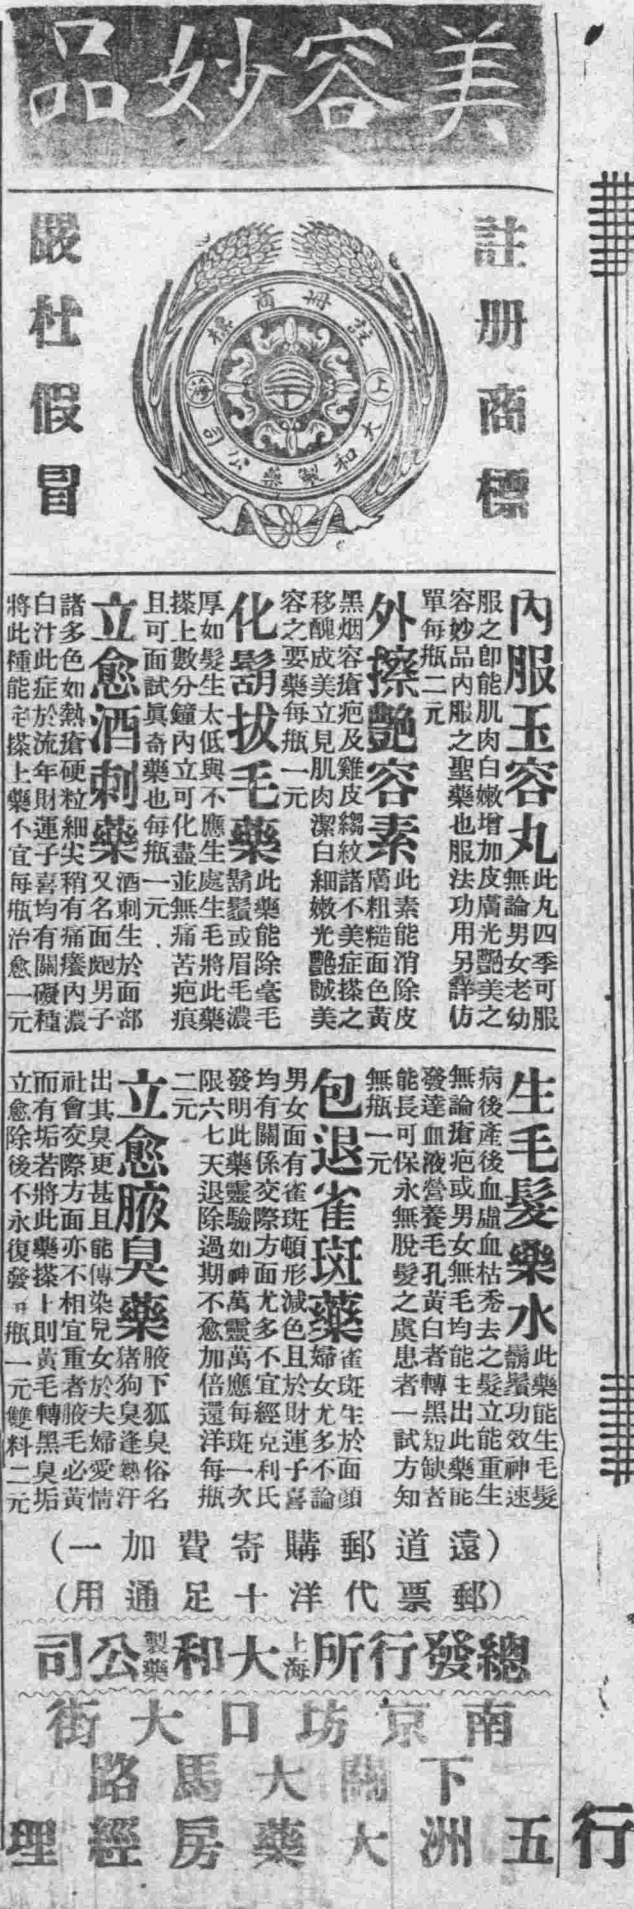 美容妙品
註册商標
嚴杜假冒
註冊商標
上海
大和製藥公司
內服玉容丸
此丸四季可服
無論男女老幼
服之卽能肌肉白嫩增加皮膚光艷美之
容妙品內服之聖藥也服法功用另詳仿
單每瓶二元
外擦艷容素
此素能消除皮
膚粗糙面色黃
黑烟容瘡疤及雞皮縐紋諸不美症搽之
移醜成美立見肌肉潔白細嫩光艷誠美
容之要藥每瓶一元
化鬍拔毛藥
此藥能除毫毛
鬍鬚或眉毛濃
厚如髮生太低與不應生處生毛將此藥
搽上數分鐘內立可化盡並無痛苦疤痕
且可面試眞奇藥也每瓶一元
立愈酒刺藥
酒刺生於面部
又名面皰男子
諸多色如熱瘡硬粒細尖稍有痛癢內濃
白汁此症於流年財運子喜均有關礙種
將此種能定搽上藥不宜每瓶治愈一元
生毛髮藥水
此藥能生毛髮
鬍鬚功效神速
病後產後血虛血枯禿去之髮立能重生
無論瘡疤或男女無毛均能生出此藥能
發達血液營養毛孔黃白者轉黑短缺者
能長可保永無脫髮之虞患者一試方知
無瓶一元
包退雀斑藥
雀斑生於面頭
婦女尤多不論
男女面有雀斑頓形減色且於財連子喜
均有關係交際方面尤多不宜經克利氏
發明此藥靈驗如神萬靈萬應每斑一次
限六七天退除過期不愈加倍還洋每瓶
二元
立愈腋臭藥
腋下狐臭俗名
猪狗臭逢熱汗
出其臭更甚且能傳染兒女於夫婦愛情
社會交際方面亦不相宜重者腋毛必黃
而有垢若將此藥搽上則黃毛轉黑臭垢
立愈除後不永復發每瓶一元雙料二元
(遠道郵購寄費加一)
(郵票代洋十足通用)
總發行所上海大和製藥公司
南京坊口大街
下關大馬路
五洲大藥房經理
行